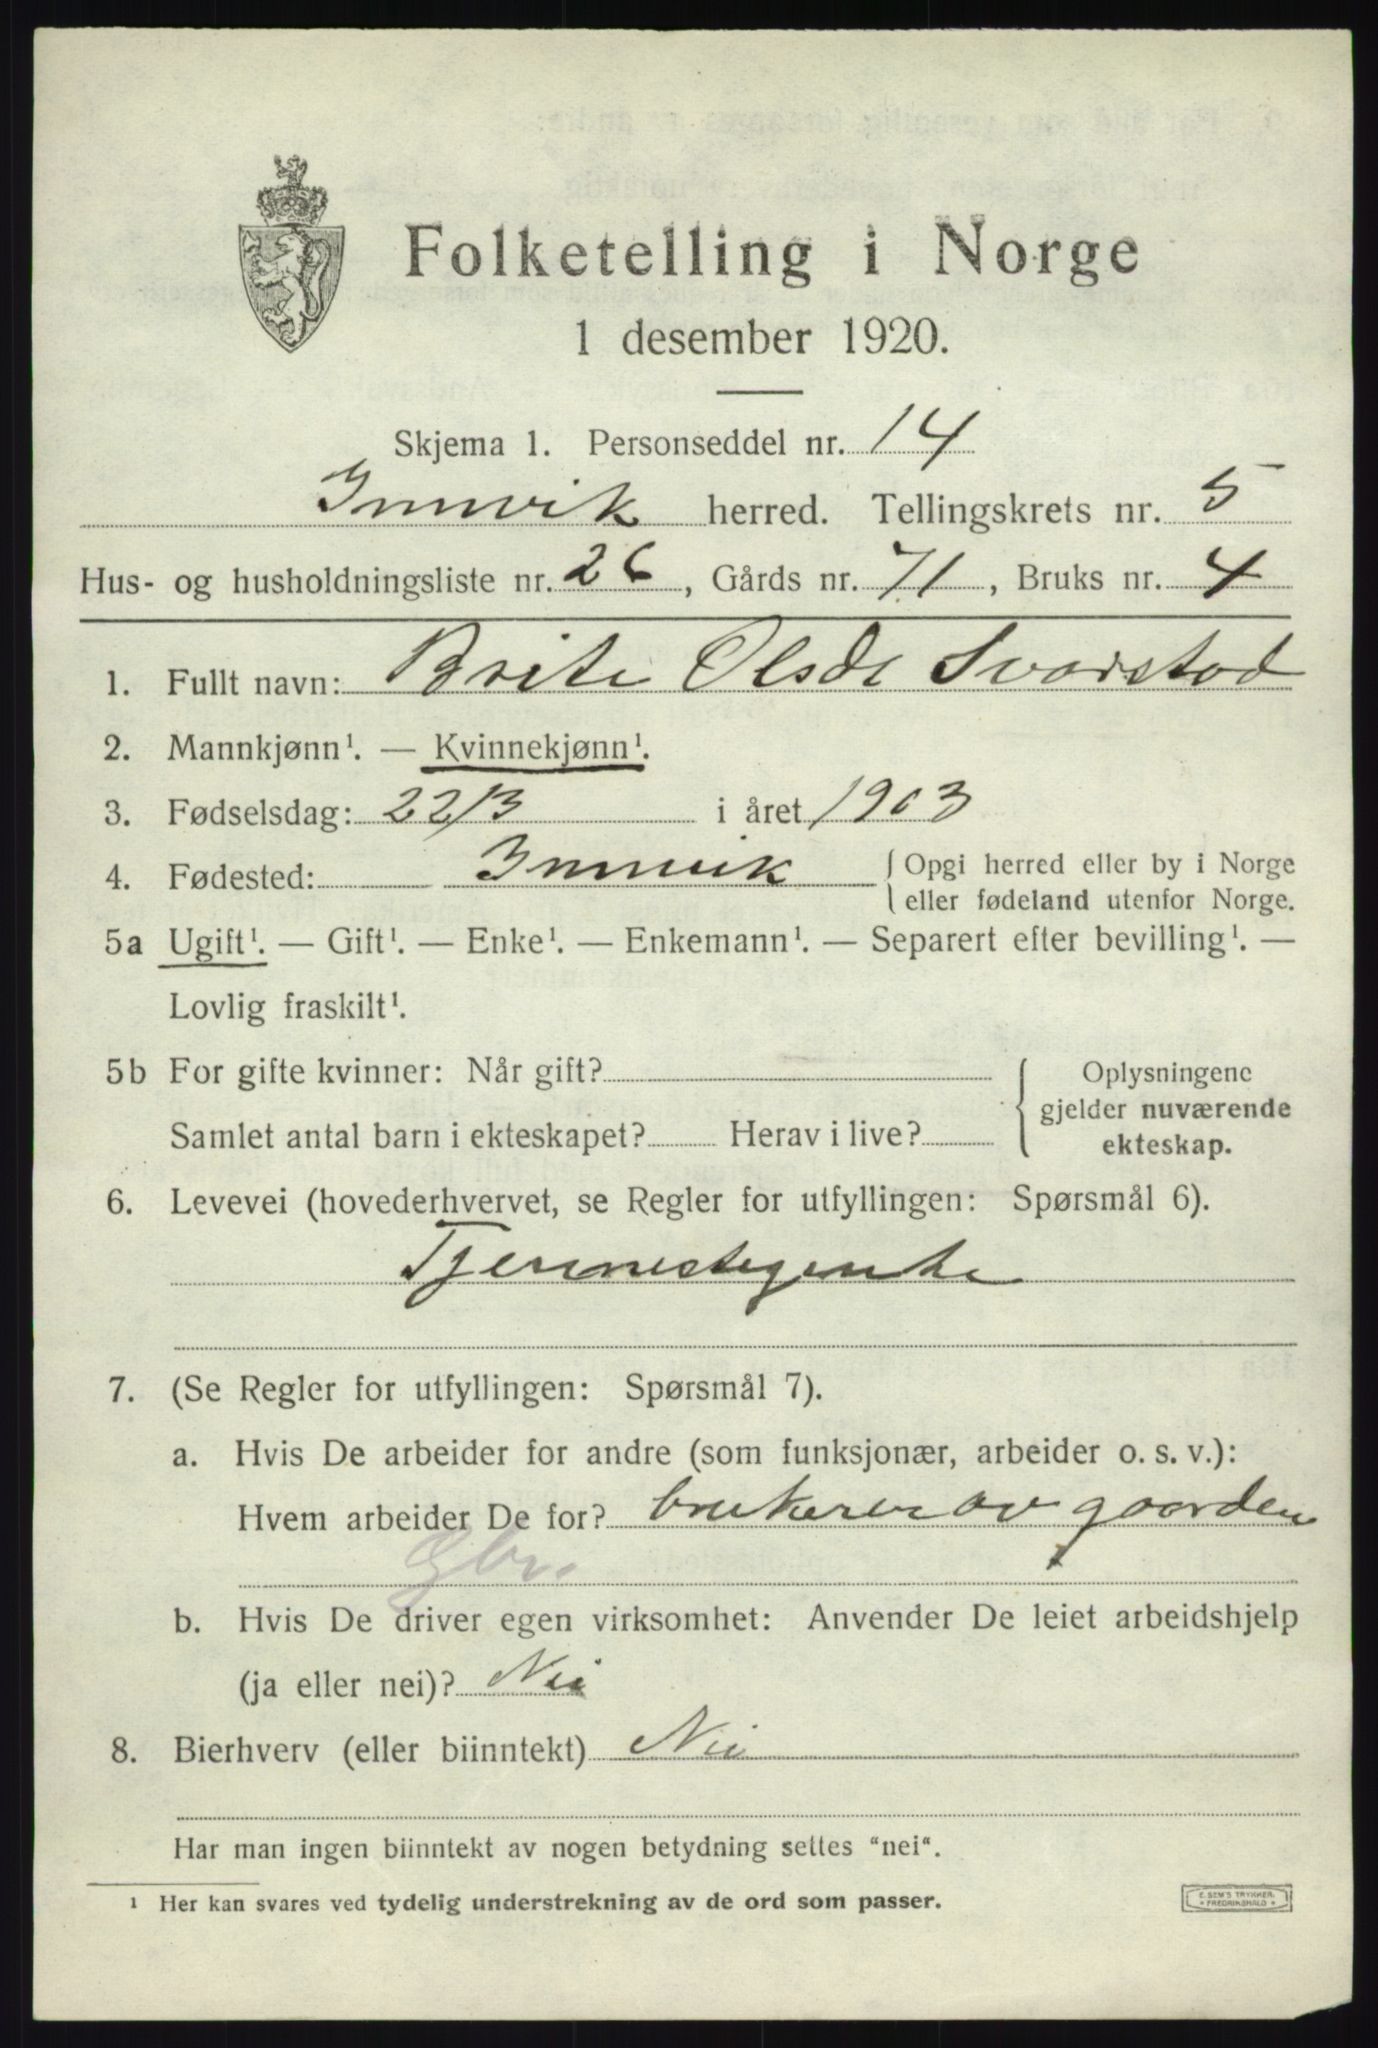 Folketelling i Norge
1 desember 1920.
Skjema 1. Personseddel nr. 14
Innvik herred. Tellingskrets nr. 5
Hus- og husholdningsliste nr. 26, Gårds nr. 71, Bruks nr. 4
1. Fullt navn: Brite Olsdt Svarstad
2. Mannkjønn¹. — Kvinnekjønn¹.
3. Fødselsdag: 22/3 i året 1903
4. Fødested: Innvik { Opgi herred eller by i Norge
eller fødeland utenfor Norge.
5a Ugift¹. — Gift¹. — Enke¹. — Enkemann¹. — Separert efter bevilling¹. —
Lovlig fraskilt¹.
5b For gifte kvinner: Når gift?
Samlet antal barn i ekteskapet? Herav i live?
{ Oplysningene
gjelder nuværende
ekteskap.
6. Levevei (hovederhvervet, se Regler for utfyllingen: Spørsmål 6).
Tjennestegente
7. (Se Regler for utfyllingen: Spørsmål 7).
a. Hvis De arbeider for andre (som funksjonær, arbeider o. s. v.):
Hvem arbeider De for? brukeren av gaarden
Gbr.
b. Hvis De driver egen virksomhet: Anvender De leiet arbeidshjelp
(ja eller nei)? Nei
8. Bierhverv (eller biinntekt) Nei
Har man ingen biinntekt av nogen betydning settes "nei".
¹ Her kan svares ved tydelig understrekning av de ord som passer.
E. SEM'S TRYKKER.
FREDRIKSHALD